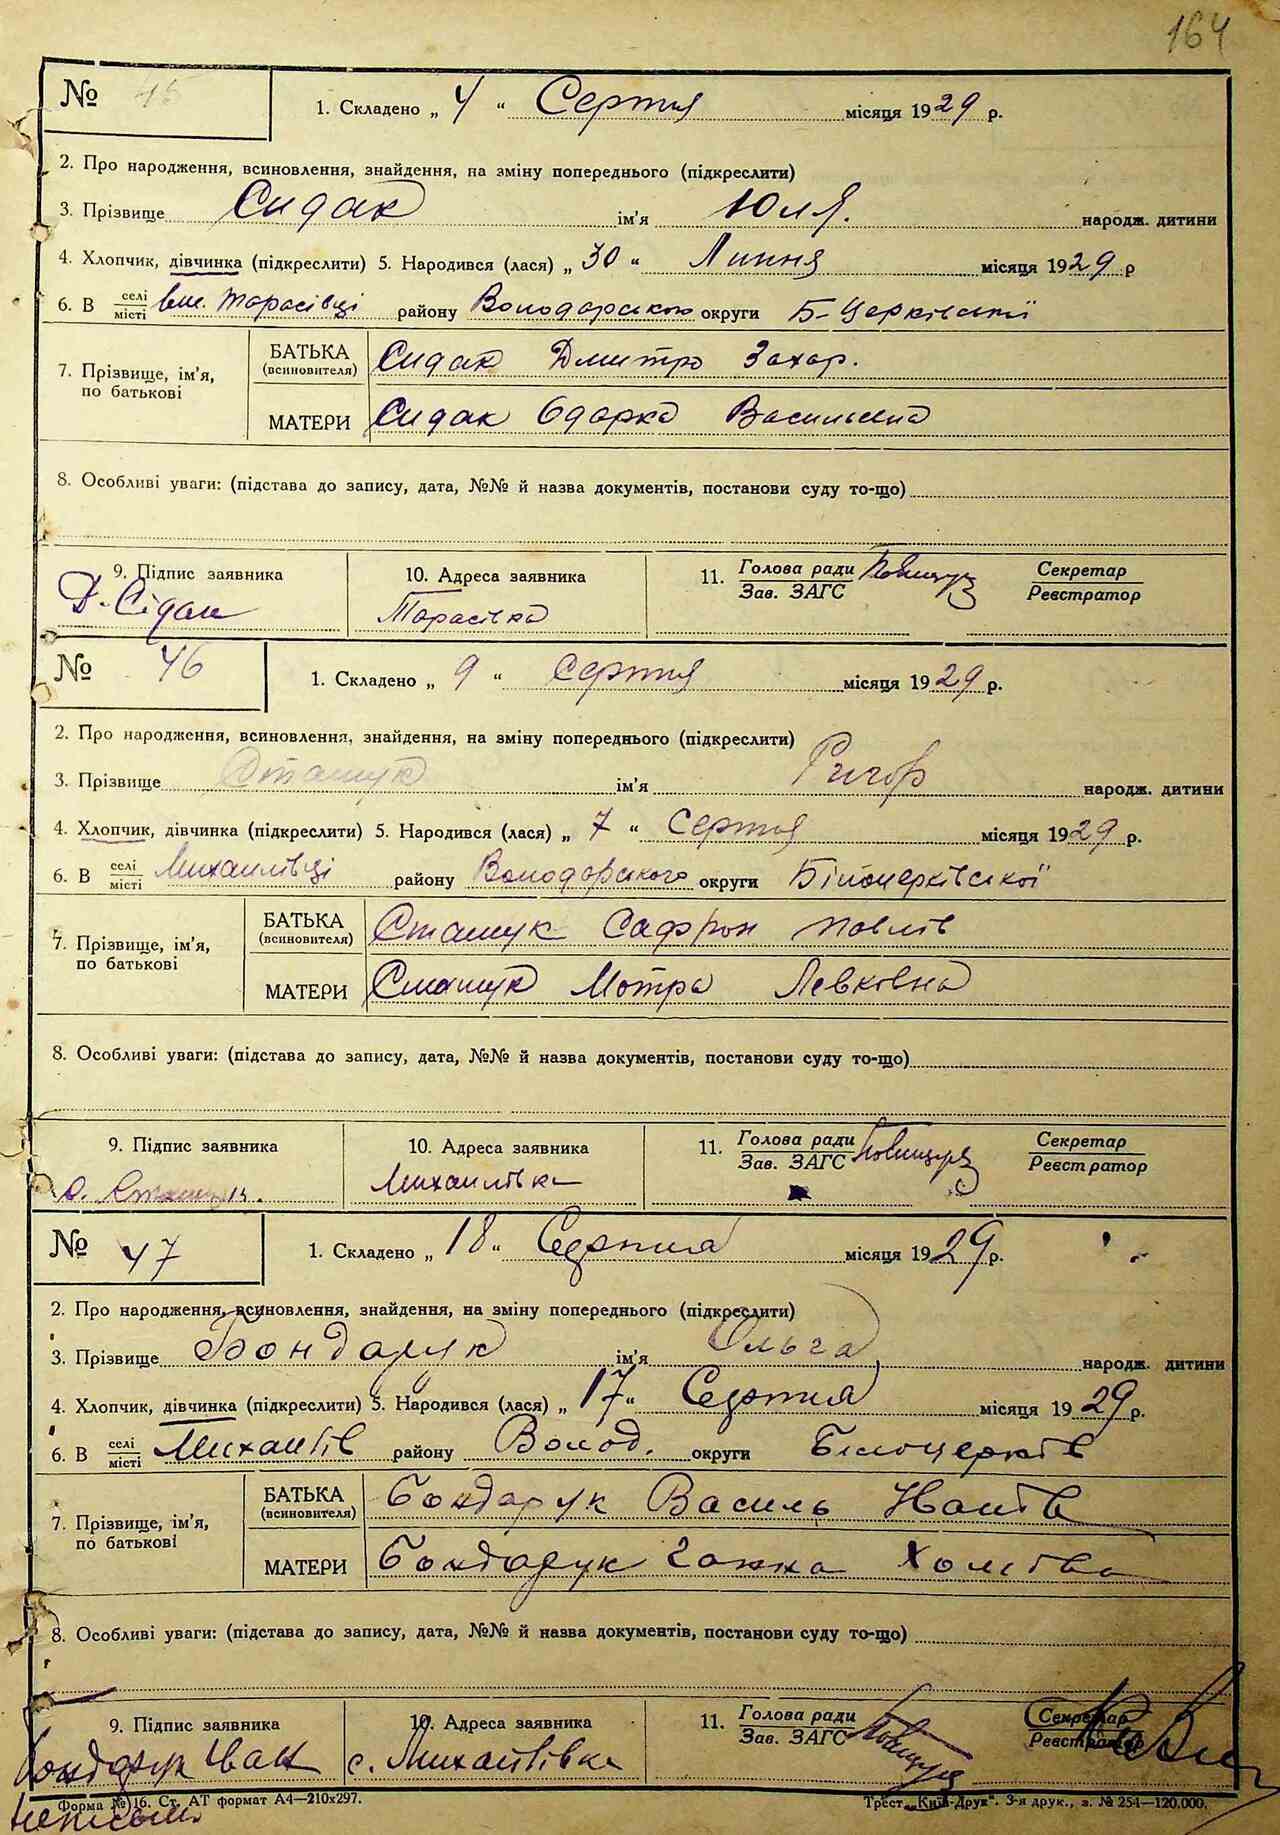 164
№ 45
1. Складено „ 4 “ Серпня місяця 1929 р.
2. Про народження, всиновлення, знайдення, на зміну попереднього (підкреслити)
3. Прізвище Сидак ім'я Юля. народж. дитини
4. Хлопчик, дівчинка (підкреслити) 5. Народився (лася) „ 30 “ Липня місяця 1929 р
6. В селі/місті Тарасівці району Володарського округи Б-Церківської
7. Прізвище, ім'я, по батькові
БАТЬКА (всиновителя) Сидак Дмитро Захар.
МАТЕРИ Сидак Одарка Васильевна
8. Особливі уваги: (підстава до запису, дата, №№ й назва документів, постанови суду то-що)
9. Підпис заявника 10. Адреса заявника 11. Голова ради/Зав. ЗАГС Секретар/Реєстратор
Д. Сідак Тарасівка
№ 46
1. Складено „ 9 “ Серпня місяця 1929 р.
2. Про народження, всиновлення, знайдення, на зміну попереднього (підкреслити)
3. Прізвище Сташук ім'я Ригор народж. дитини
4. Хлопчик, дівчинка (підкреслити) 5. Народився (лася) „ 7 “ Серпня місяця 1929 р.
6. В селі/місті Михайлівці району Володарського округи Білоцерківської
7. Прізвище, ім'я, по батькові
БАТЬКА (всиновителя) Сташук Сафрон Павлів
МАТЕРИ Сташук Мотра Левковна
8. Особливі уваги: (підстава до запису, дата, №№ й назва документів, постанови суду то-що)
9. Підпис заявника 10. Адреса заявника 11. Голова ради/Зав. ЗАГС Секретар/Реєстратор
Михайлівка
№ 47
1. Складено „ 18 “ Серпня місяця 1929 р.
2. Про народження, всиновлення, знайдення, на зміну попереднього (підкреслити)
3. Прізвище Бондарук ім'я Ольга народж. дитини
4. Хлопчик, дівчинка (підкреслити) 5. Народився (лася) „ 17 “ Серпня місяця 1929 р.
6. В селі/місті Михайлів району Волод. округи Білоцерків
7. Прізвище, ім'я, по батькові
БАТЬКА (всиновителя) Бондарук Василь Иванів
МАТЕРИ Бондарук Ганна Хомівна
8. Особливі уваги: (підстава до запису, дата, №№ й назва документів, постанови суду то-що)
9. Підпис заявника 10. Адреса заявника 11. Голова ради/Зав. ЗАГС Секретар/Реєстратор
Бондарук Иван с. Михайлівка
Форма № 16. Ст. АТ формат А4—210х297. Трест „Київ-Друк“. 3-я друк., з. № 254—120.000.